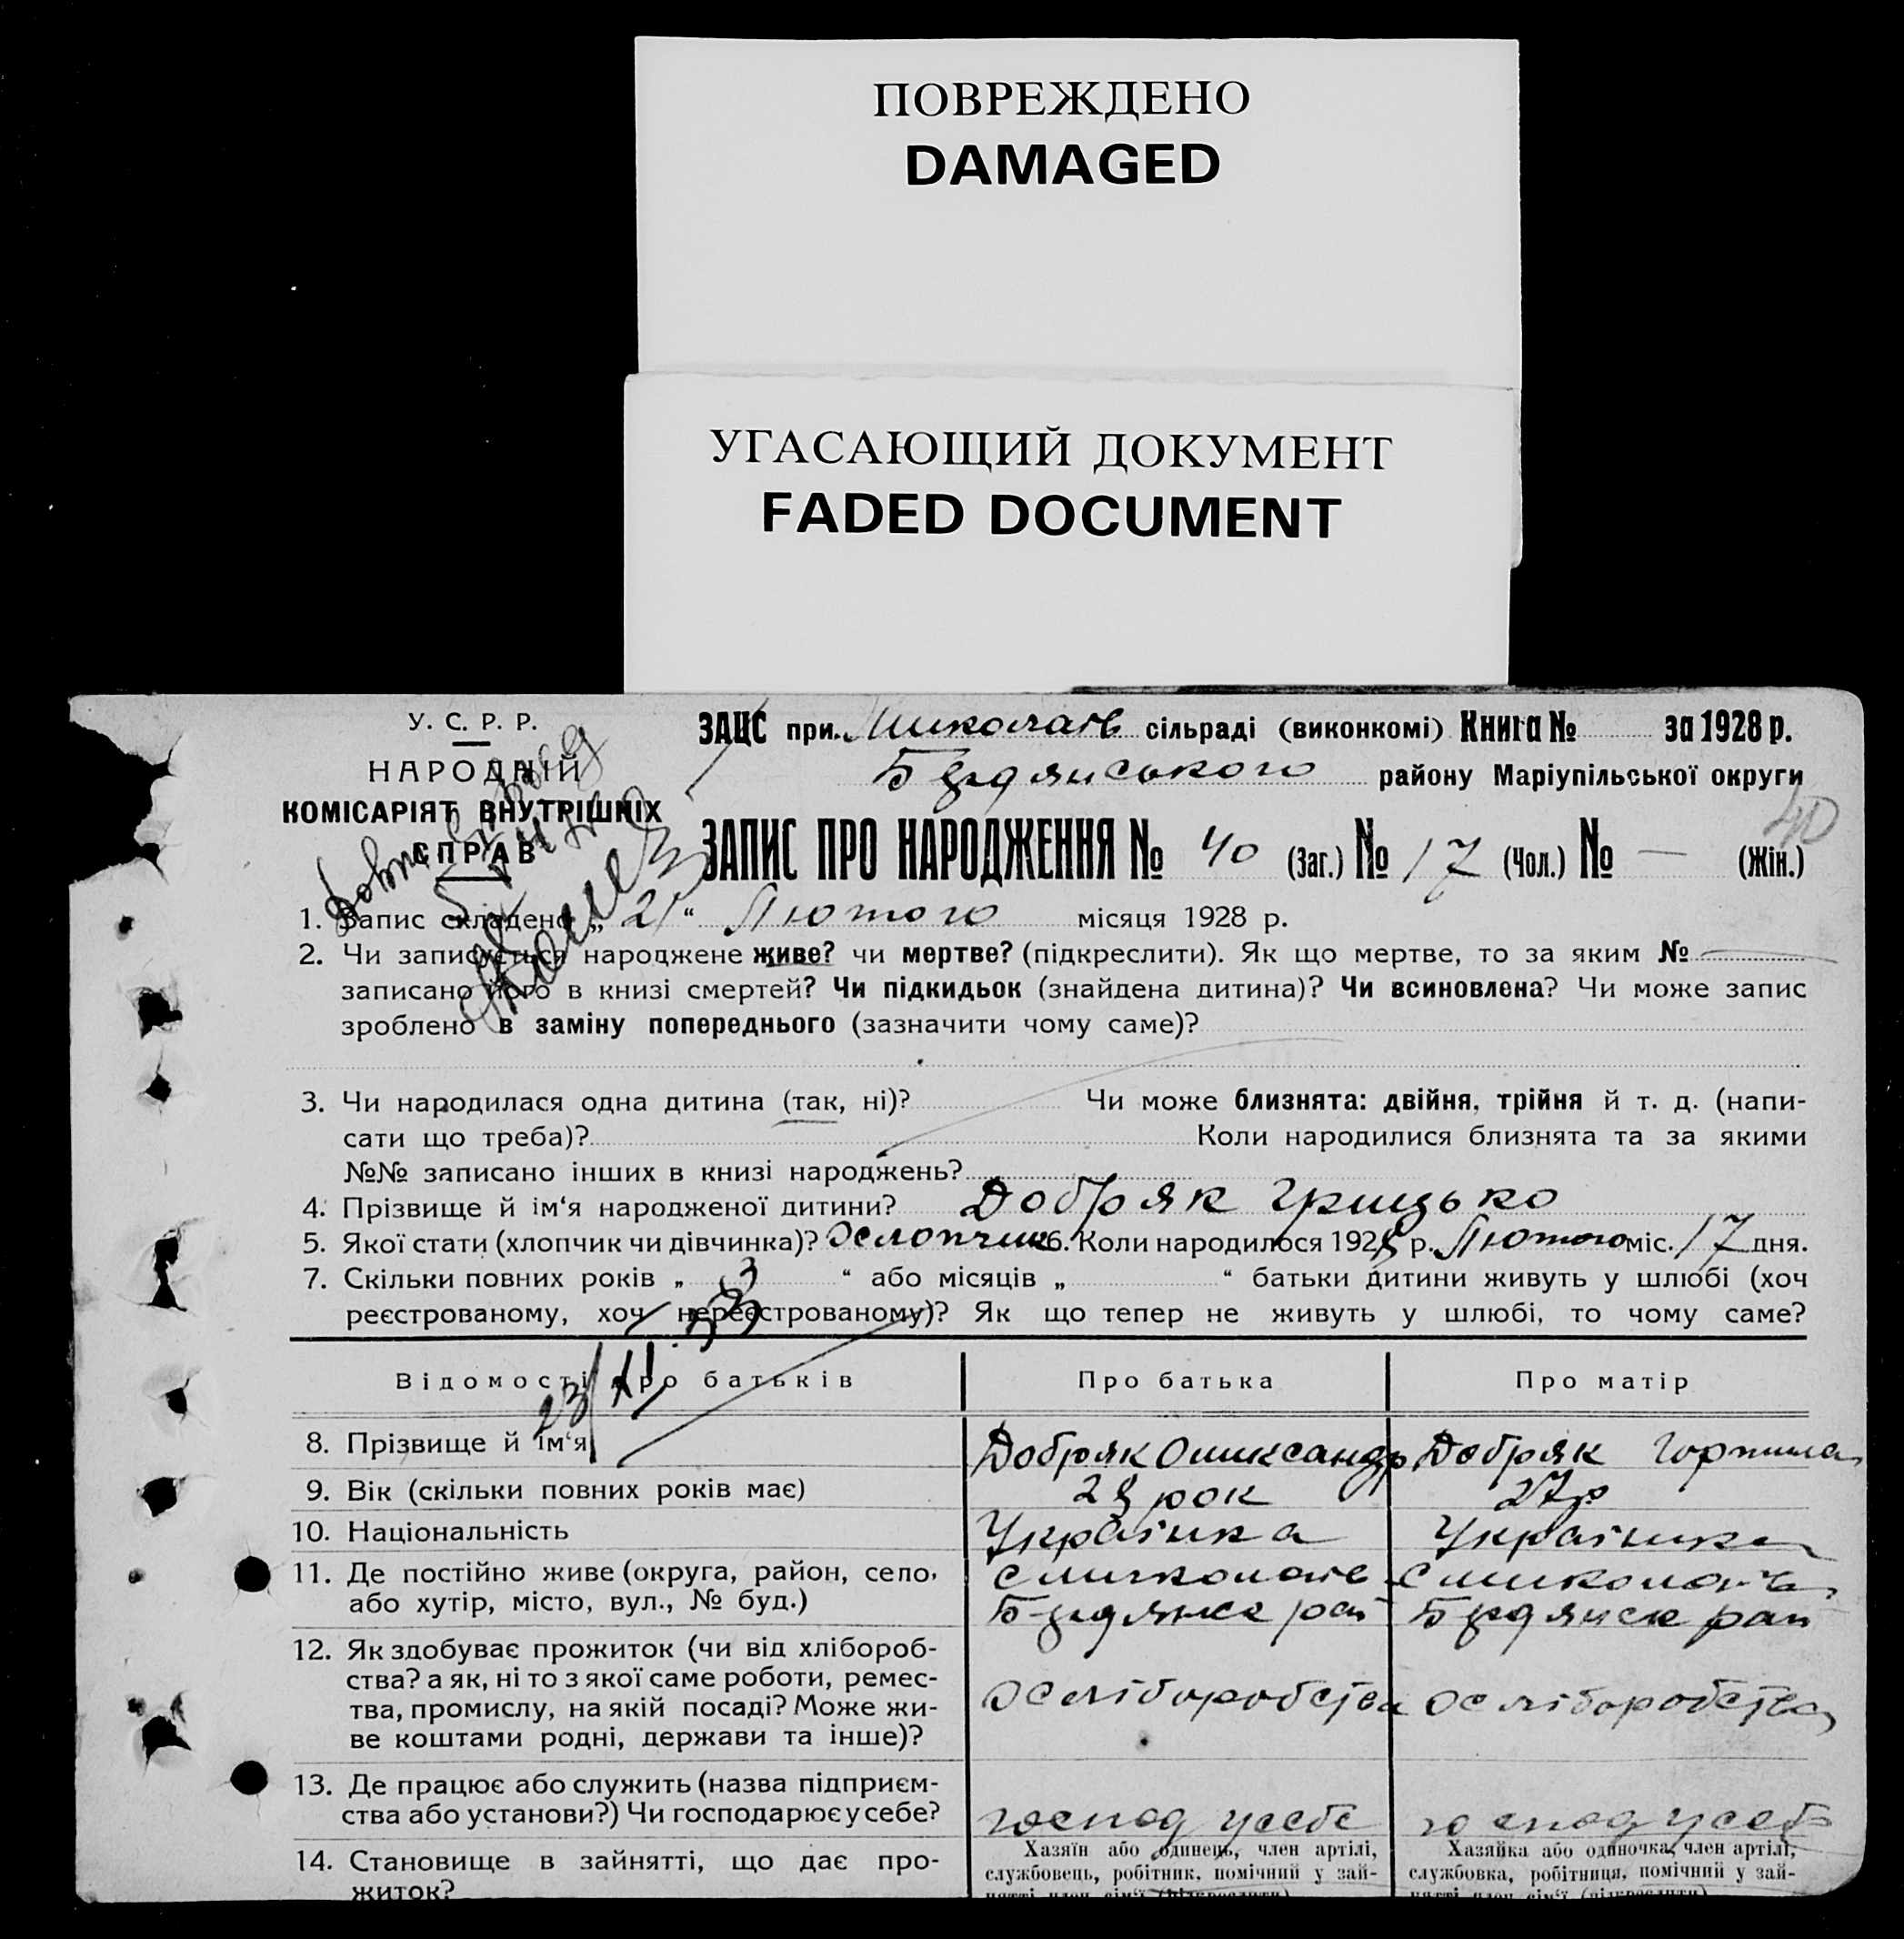 ПОВРЕЖДЕНО
DAMAGED
УГАСАЮЩИЙ ДОКУМЕНТ
FADED DOCUMENT
У. С. Р. Р.
НАРОДНІЙ
КОМІСАРІЯТ ВНУТРІШНІХ
СПРАВ
ЗАЦС при Миколаїв сільраді (виконкомі) Книга № за 1928 р.
Бердянського району Маріупільської округи
40
ЗАПИС ПРО НАРОДЖЕННЯ № 40 (Заг.) № 17 (Чол.) № — (Жін.)
1. Запис складено „ 21 “ Лютого місяця 1928 р.
2. Чи записується народжене живе? чи мертве? (підкреслити). Як що мертве, то за яким №
записано його в книзі смертей? Чи підкидьок (знайдена дитина)? Чи всиновлена? Чи може запис
зроблено в заміну попереднього (зазначити чому саме)?
3. Чи народилася одна дитина (так, ні)? Чи може близнята: двійня, трійня й т. д. (напи-
сати що треба)? Коли народилися близнята та за якими
№№ записано інших в книзі народжень?
4. Прізвище й ім‘я народженої дитини? Добряк Грицько
5. Якої статі (хлопчик чи дівчинка)? Хлопчик 6. Коли народилося 1928 р. Лютого міс. 17 дня.
7. Скільки повних років „ 3 “ або місяців „ “ батьки дитини живуть у шлюбі (хоч
реєстрованому, хоч нереєстрованому)? Як що тепер не живуть у шлюбі, то чому саме?
23/XI 33
Відомості про батьків Про батька Про матір
8. Прізвище й ім‘я Добряк Олександр Добряк
9. Вік (скільки повних років має) 28 рок 27 р
10. Національність Українка Українка
11. Де постійно живе (округа, район, село, с Миколаїв с Миколаїв
або хутір, місто, вул., № буд.) Бердянск рай Бердянск рай
12. Як здобуває прожиток (чи від хлібороб-
ства? а як, ні то з якої саме роботи, ремес-
тва, промислу, на якій посаді? Може жи- Хліборобства Хліборобства
ве коштами родні, держави та інше)?
13. Де працює або служить (назва підприєм-
ства або установи?) Чи господарює у себе? господ у себе господ у себе
14. Становище в зайнятті, що дає про-
житок?
Хазяїн або одинець, член артілі,
службовець, робітник, помічний у зай-
нятті член сім‘ї (підкреслити)
Хазяйка або одиночка, член артілі,
службовка, робітниця, помічний у зай-
нятті член сім‘ї (підкреслити)